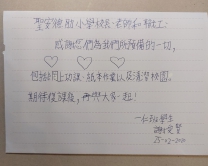 聖安德肋小學校長、老師和職工:
感謝您們為我們所預備的一切,
包括網上功課、紙本作業以及清潔校園。
期待復課後,再與大家一起!
一和班學生
謝
25-02-2020